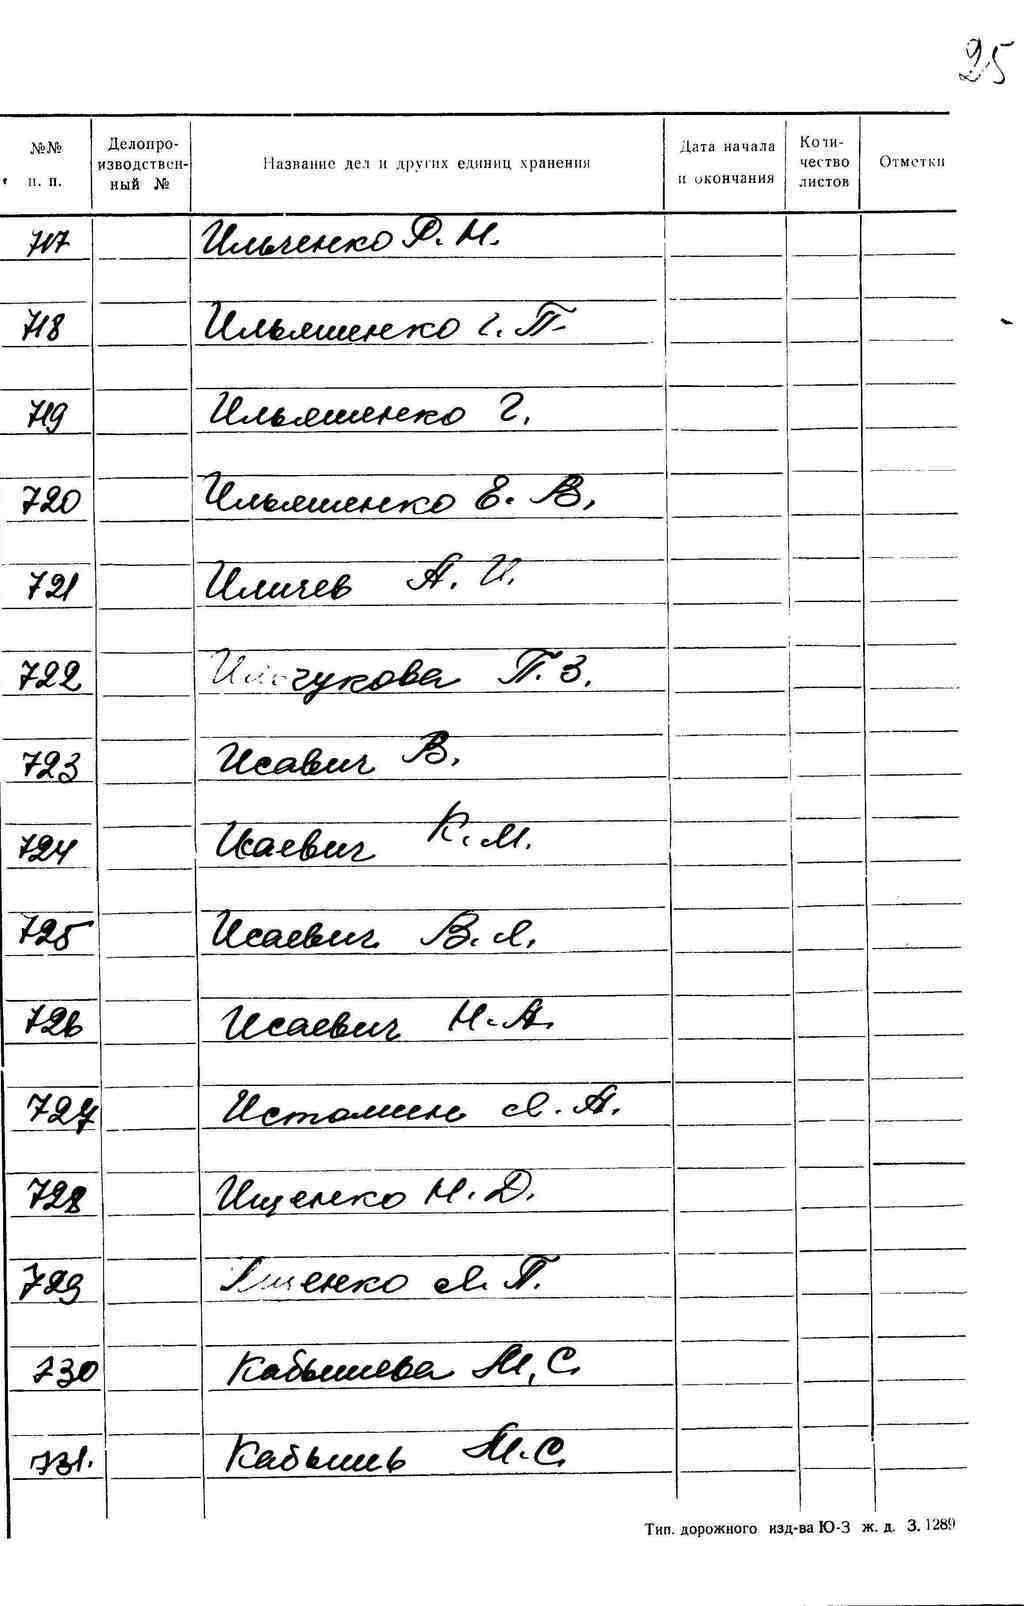 25
№№ п. п. Делопроизводственный № Название дел и других единиц хранения Дата начала и окончания Количество листов Отметки
717 Ильченко Р. Н.
718 Ильяшенко г. П.
719 Ильяшенко Г.
720 Ильяшенко Е. В.
721 Иличев А. И.
722 П. З.
723 Исавич В.
724 Исаевич К. М.
725 Исаевич В. Л.
726 Исаевич Н. А.
727 Истомин Л. А.
728 Ищенко Н. Д.
729 Ищенко Л. П.
730 Кабышева М. С.
731. Кабышь М. С.
Тип. дорожного изд-ва Ю-З ж. д. З. 1289